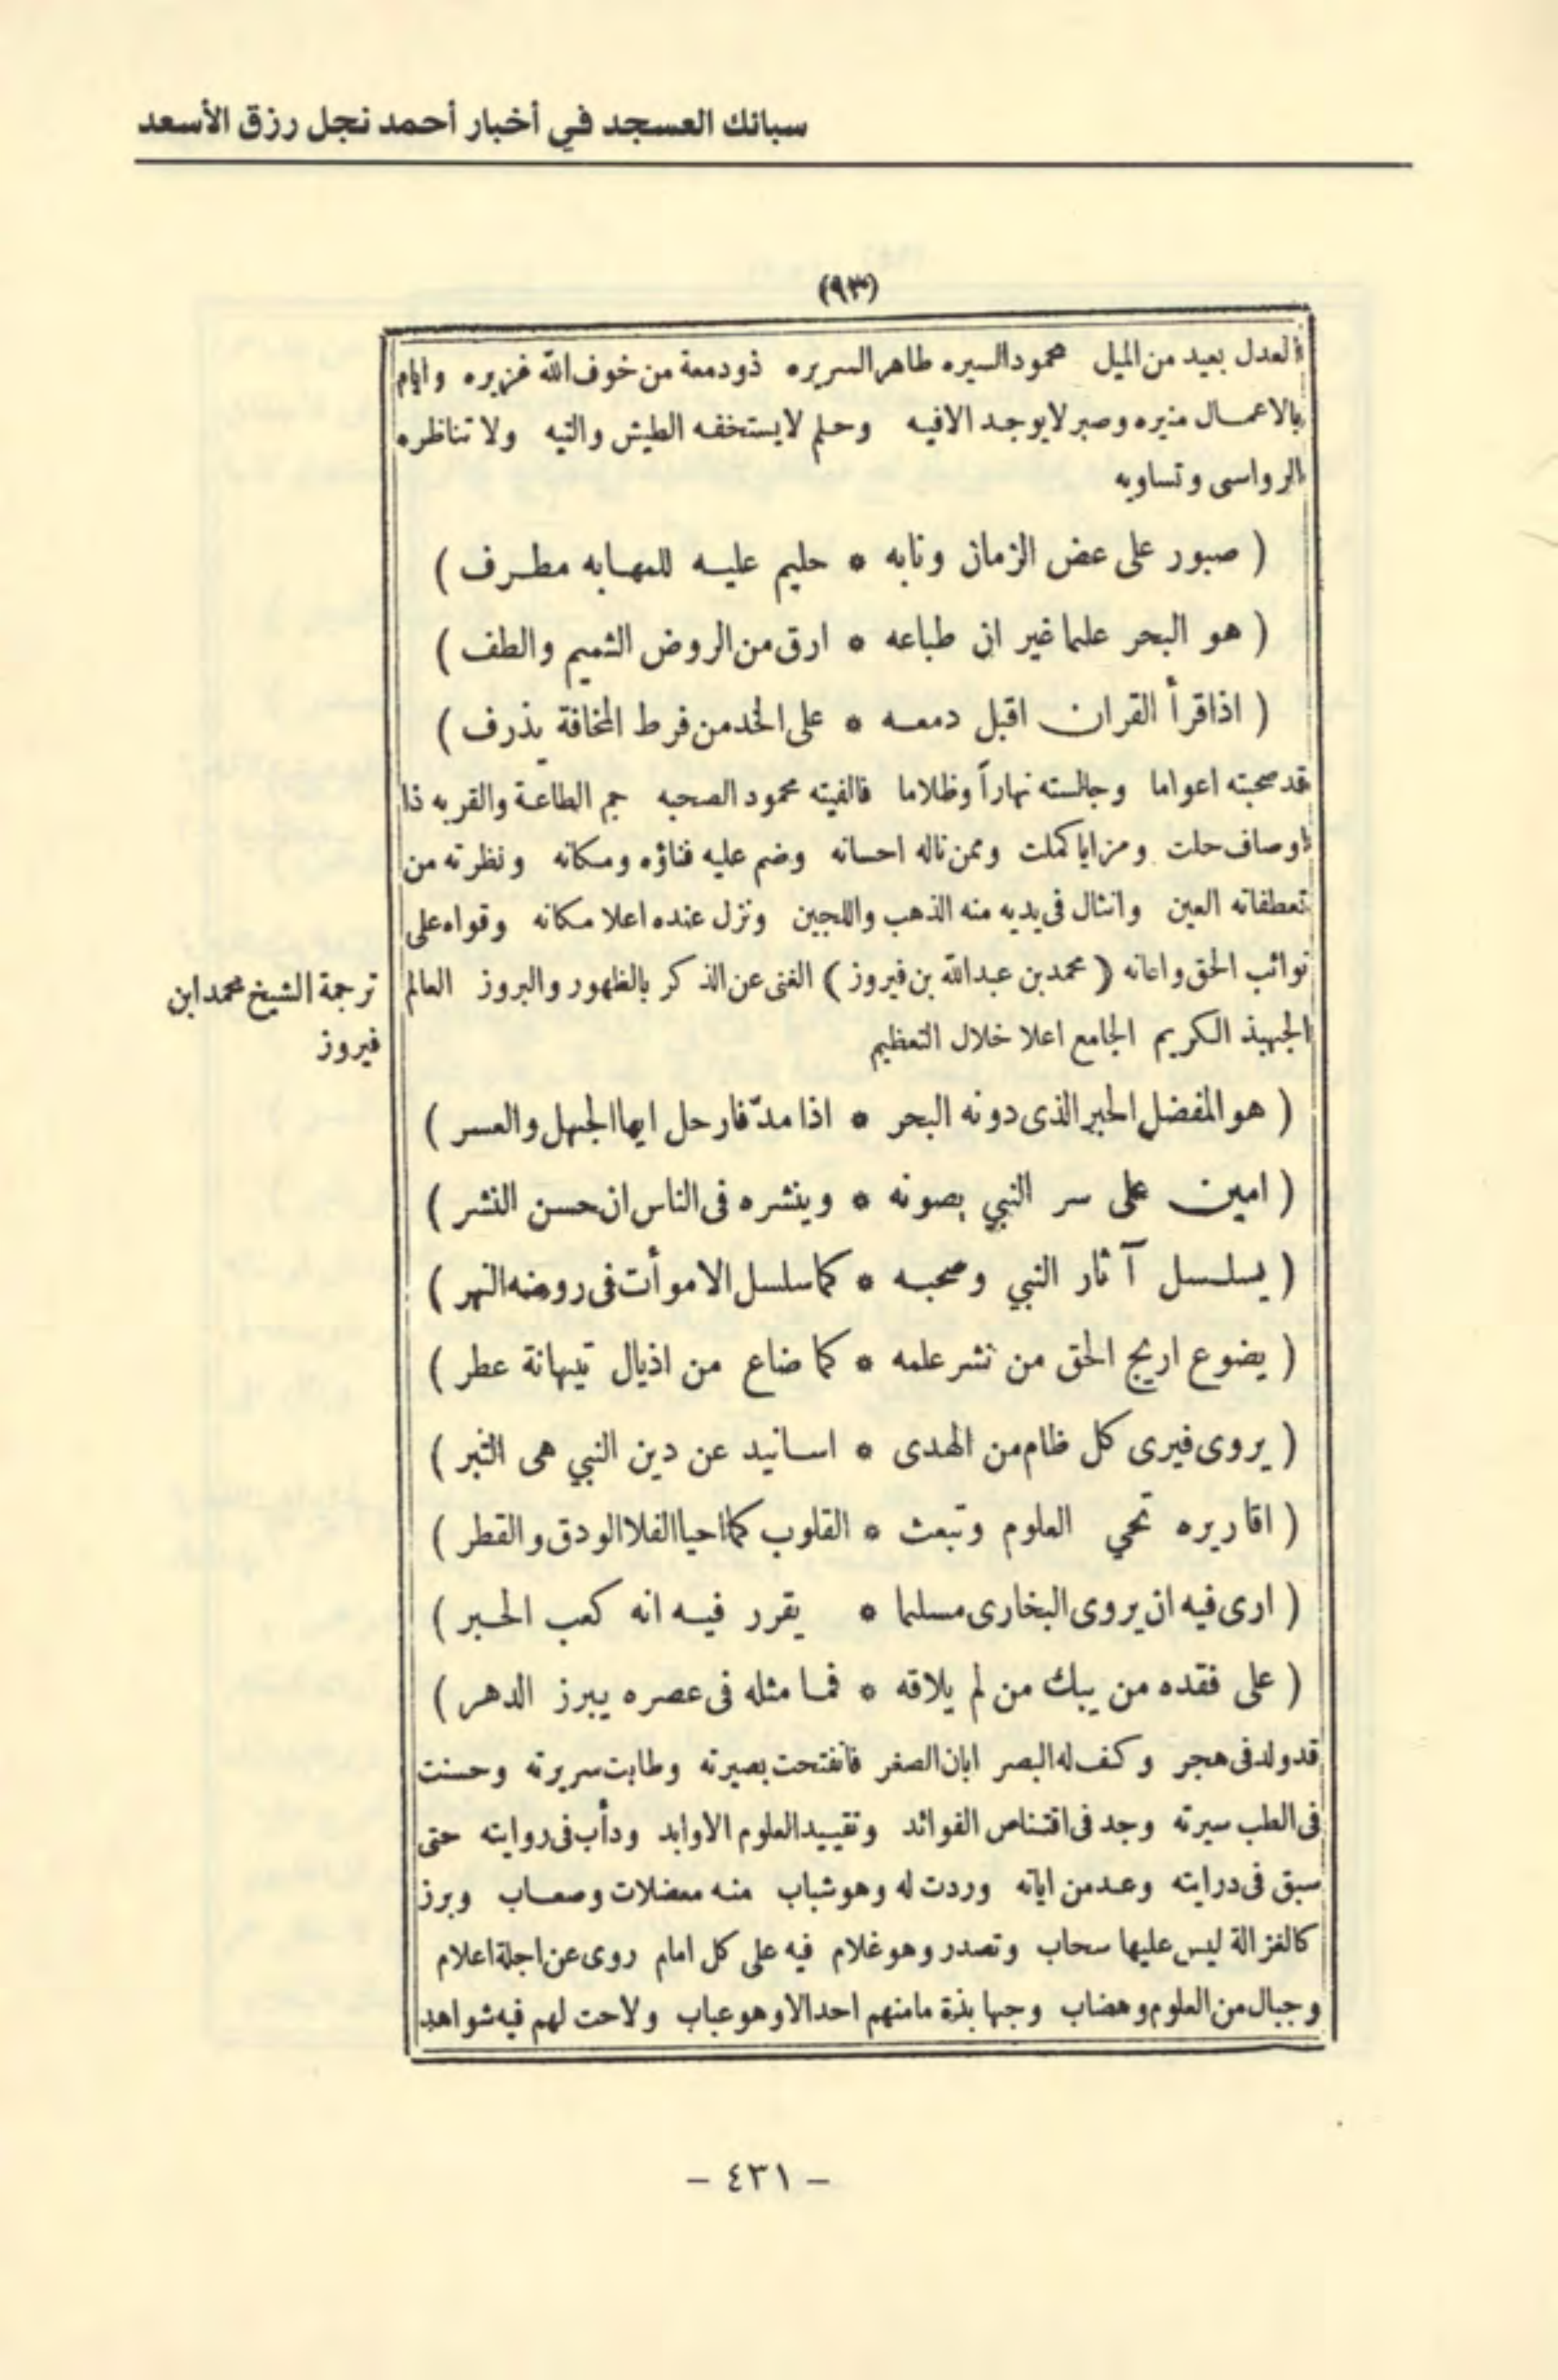 سبائك العسجد في أخبار أحمد نجل رزق الأسعد
(٩٣)
العدل بعيد من الميل محمود السيره طاهر السريره ذو دمعة من خوف الله غزيره وايام
بالاعمال منيره وصبر لايوجد الافيه وحلم لايستخفه الطيش والتيه ولا تناظره
الرواسى وتساويه
( صبور على عض الزمان ونابه * حليم عليه للمهابه مطرف )
( هو البحر علما غير ان طباعه * ارق من الروض الشميم والطف )
( اذا قرأ القران اقبل دمعه * على الخد من فرط المخافة يذرف )
قد صحبته اعواما وجالسته نهاراً وظلاما فالفيته محمود الصحبه جم الطاعة والقربه ذا
اوصاف حلت ومزايا كملت وممن ناله احسانه وضم عليه فناؤه ومكانه ونظرته من
تعطفاته العين وانثال فى يديه منه الذهب واللجين ونزل عنده اعلا مكانه وقواه على
نوائب الحق واعانه ( محمد بن عبدالله بن فيروز ) الغنى عن الذكر بالظهور والبروز العالم
ترجمة الشيخ محمد ابن
فيروز
الجهبذ الكريم الجامع اعلا خلال التعظيم
( هو المفضل الحبر الذى دونه البحر * اذا مدّ فارحل ايها الجهل والعسر )
( امين على سر النبي يصونه * وينشره فى الناس ان حسن النشر )
( يسلسل آثار النبي وصحبه * كما سلسل الاموأت فى روضه النهر )
( يضوع اريج الحق من نشر علمه * كما ضاع من اذيال تيهانة عطر )
( يروى فيروى كل ظام من الهدى * اسانيد عن دين النبي هى الثبر )
( اقاريره تحي العلوم وتبعث * القلوب كما احيا الفلا الودق والقطر )
( ارى فيه ان يروى البخارى مسلما * يقرر فيه انه كعب الحبر )
( على فقده من يبك من لم يلاقه * فما مثله فى عصره يبرز الدهر )
قد ولد فى هجر وكف له البصر ابان الصغر فانفتحت بصيرته وطابت سريرته وحسنت
فى الطب سيرته وجد فى اقتناص الفوائد وتقييد العلوم الاوابد ودأب فى روايته حتى
سبق فى درايته وعد من اياته وردت له وهو شباب منه معضلات وصعاب وبرز
كالغزالة ليس عليها سحاب وتصدر وهو غلام فيه على كل امام روى عن اجلة اعلام
وجبال من العلوم وهضاب وجهابذة مامنهم احد الا وهو عباب ولاحت لهم فيه شواهد
- ٤٣١ -